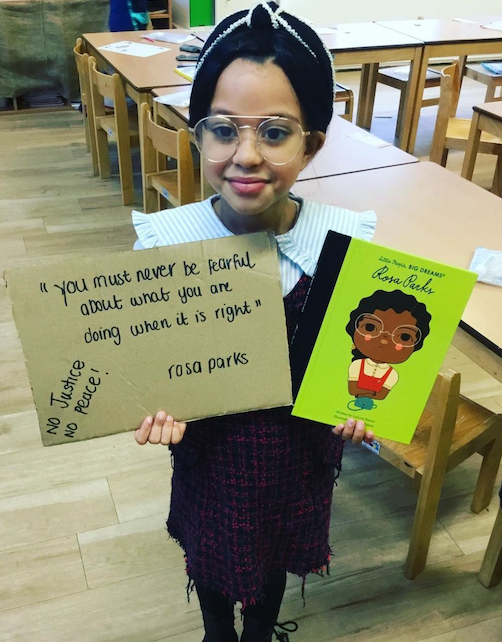 "You must never be fearful
about what you are
doing when it is right"
rosa parks
No Justice
No Peace!
Little People, BIG DREAMS
Rosa Parks